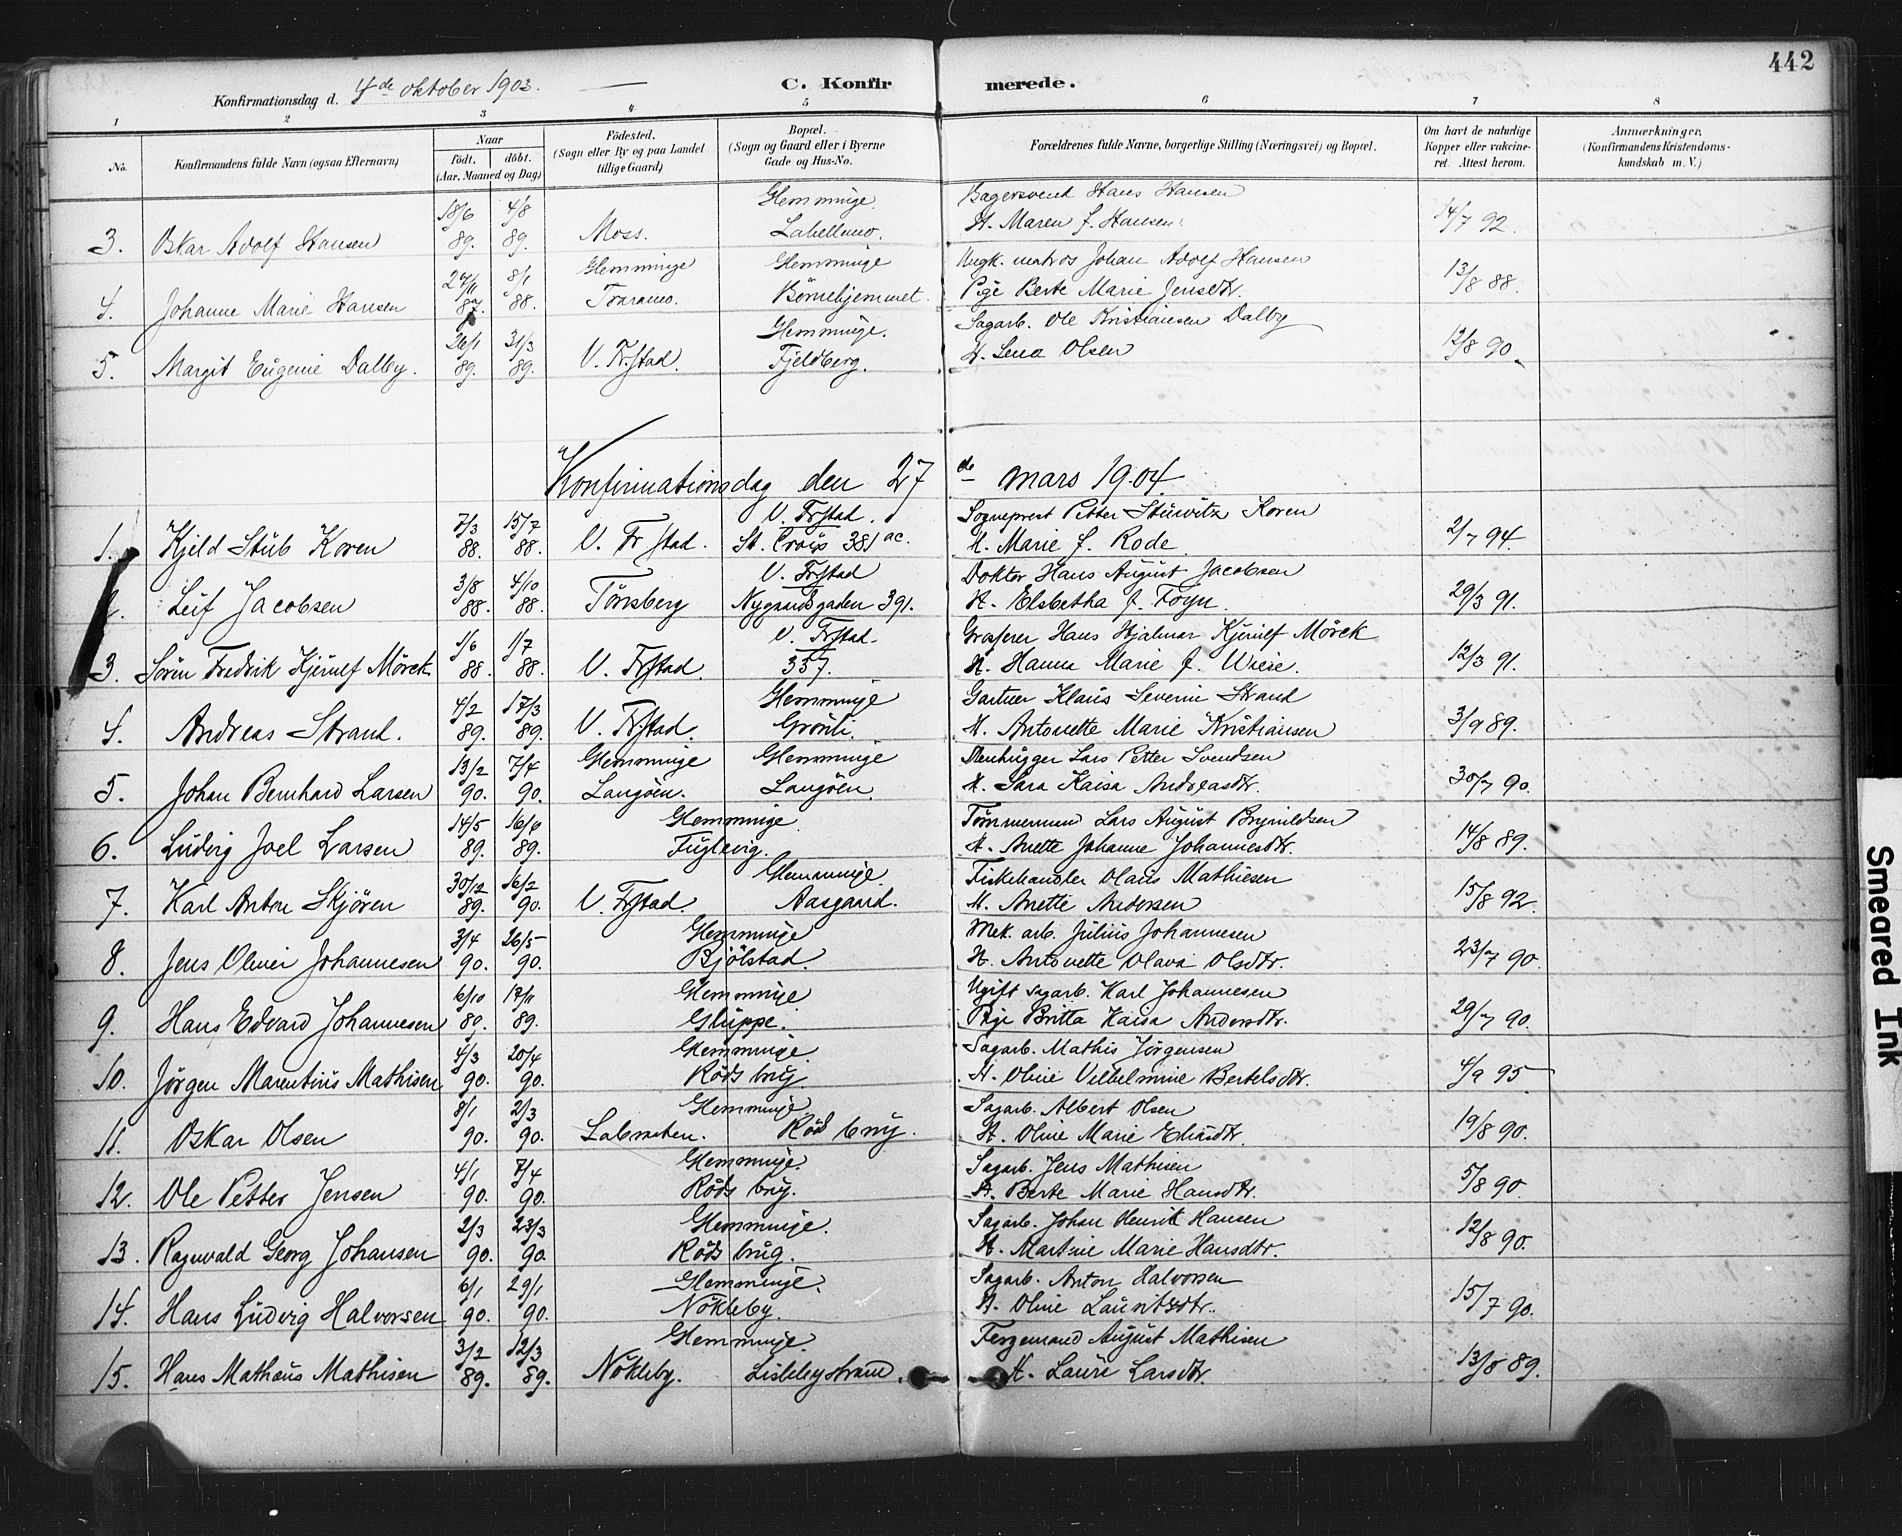 442
Konfirmationsdag d. 4de oktober 1903. C. Konfirmerede.
1 2 3 4 5 6 7 8
No. Konfirmandens fulde Navn (ogsaa Efternavn) Naar født. døbt. (Aar, Maaned og Dag) Fødested. (Sogn eller By og paa Landet tillige Gaard) Bopæl. (Sogn og Gaard eller i Byerne Gade og Hus-No. Forældrenes fulde Navne, borgerlige Stilling (Næringsvei) og Bopæl. Om havt de naturlige Kopper eller vaccineret. Attest herom. Anmærkninger. (Konfirmandens Kristendomskundskab m. V.)
18/6 4/8 Glemminge Bagersvend Hans Hansen
3. Oskar Adolf Hansen 89. 89. Moss. Labellmo. H. Maren f. Hansen. 14/7 92.
27/11 8/1 Glemminge Glemminge Ungk. matros Johan Adolf Hansen
4. Johanne Marie Hansen 87. 88. Traramo. Börnehjemmet. Pige Berte Marie Jensdtr. 13/8 88.
26/1 31/3 Glemminge. Sagarb. Ole Kristiansen Dalby
5. Margit Eugenie Dalby. 89. 89. V. Fr.stad. Fjeldberg. H. Lena Olsen 12/8 90.
Konfirmationsdag den 27de mars 1904.
7/3 15/7 V. Frstad. Sogneprest Petter Stüwitz Koren
1. Kjeld Stub Koren 88. 88. V. Frstad. St. Croix 381 ac. H. Marie f. Rode 2/7 94.
3/8 4/10 V. Frstad Doktor Hans August Jacobsen
2. Leif Jacobsen 88. 88. Tönsberg Nygaardsgaden 391. H. Elsbetha f. Foyn. 29/3 91.
1/6 1/7 V. Frstad. Grosserer Hans Hjalmar Kjerulf Mörck
3. Sören Fredrik Kjerulf Mörck 88. 88. V. Frstad. 357. H. Hanna Marie f. Wiese. 12/3 91.
4/2 17/3 Glemminge Gartner Klaus Severin Strand
4. Andreas Strand. 89. 89. V. Frstad. Grönli. H. Antonette Marie Kristiansen 3/9 89.
13/2 7/4 Glemminge Glemminge Stenhugger Lars Petter Svendsen
5. Johan Bernhard Larsen 90. 90. Langöen. Langöen. H. Sara Kaisa Andreasdtr. 30/7 90.
14/5 16/6 Glemminge Tömmermand Lars August Brynildsen
6. Ludvig Joel Larsen 89. 89. Fuglevig. H. Anette Johanne Johannesdtr. 14/8 89.
30/12 16/2 Glemminge Fiskehandler Olaus Mathiesen
7. Karl Anton Skjören 89. 90. V. Frstad. Aasgaard. H. Anette Andersen 15/8 92.
3/4 26/5 Glemminge Mek. arb. Julius Johannesen
8. Jens Oliver Johannesen 90. 90. Bjölstad. H. Antonette Olava Olsdtr. 23/7 90.
6/10 17/11 Glemminge Ugift sagarb. Karl Johannesen
9. Hans Edvard Johannesen 89. 89. Gluppe. Pige Britta Kaisa Andersdtr. 29/7 90.
4/3 20/4 Glemminge Sagarb. Mathis Jörgensen
10. Jörgen Marentius Mathisen 90. 90. Röds brug H. Oline Vilhelmine Bertelsdtr. 4/9 95
8/1 2/3 Glemminge Sagarb. Albert Olsen
11. Oskar Olsen 90. 90. Labraaten. Röd brug. H. Oline Marie Eliasdtr. 19/8 90.
4/1 7/4 Glemminge. Sagarb. Jens Mathisen
12. Ole Petter Jensen 90. 90. Röds brug. H. Berte Marie Hansdtr. 5/8 90.
2/3 23/3 Glemminge. Sagarb. Johan Henrik Hansen
13. Ragnvald Georg Johansen 90. 90. Röds brug. H. Martine Marie Hansdtr. 12/8 90.
6/1 29/1 Glemminge. Sagarb. Anton Halvorsen
14. Hans Ludvig Halvorsen 90. 90. Nökleby. H. Oline Lauritsdtr. 15/7 90.
3/2 12/3 Glemminge. Fergemand August Mathisen
15. Hans Mathæus Mathisen 89. 89. Nökleby. Lislebystrand. H. Laura Larsdtr. 13/8 89.
Smeared Ink